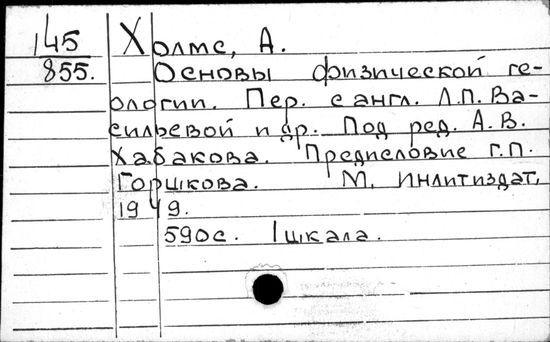 145
855.
Холмс, А.
Основы физической ге-
ологии. Пер. с англ. Л.П. Ва-
сильевой и др. Под ред. А.В.
Хабакова. Предисловие Г.П.
Горшкова. М, Инлитиздат,
1949.
590с. 1 шкала.